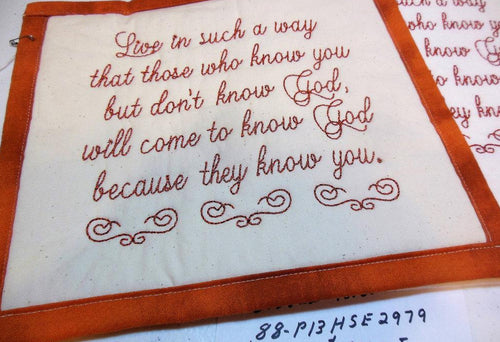 Live in such a way
that those who know you
but don't know God,
will come to know God
because they know you.
such a way
who know you
know God
to know
ey kn
88-P13HSE2979